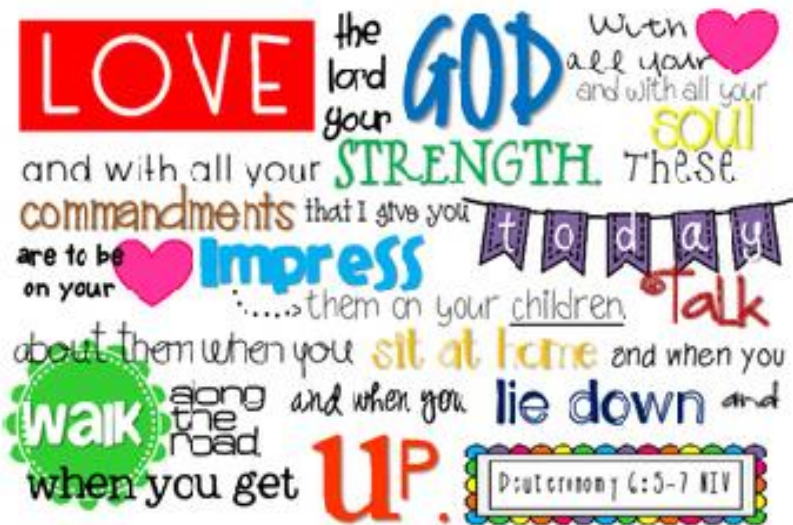 LOVE the lord your GOD with all your
and with all your soul
and with all your STRENGTH. These
commandments that I give you today
are to be on your
Impress
them on your children. Talk
about them when you sit at home and when you
walk along the road, and when you lie down and
when you get UP.
Deuteronomy 6:5-7 NIV